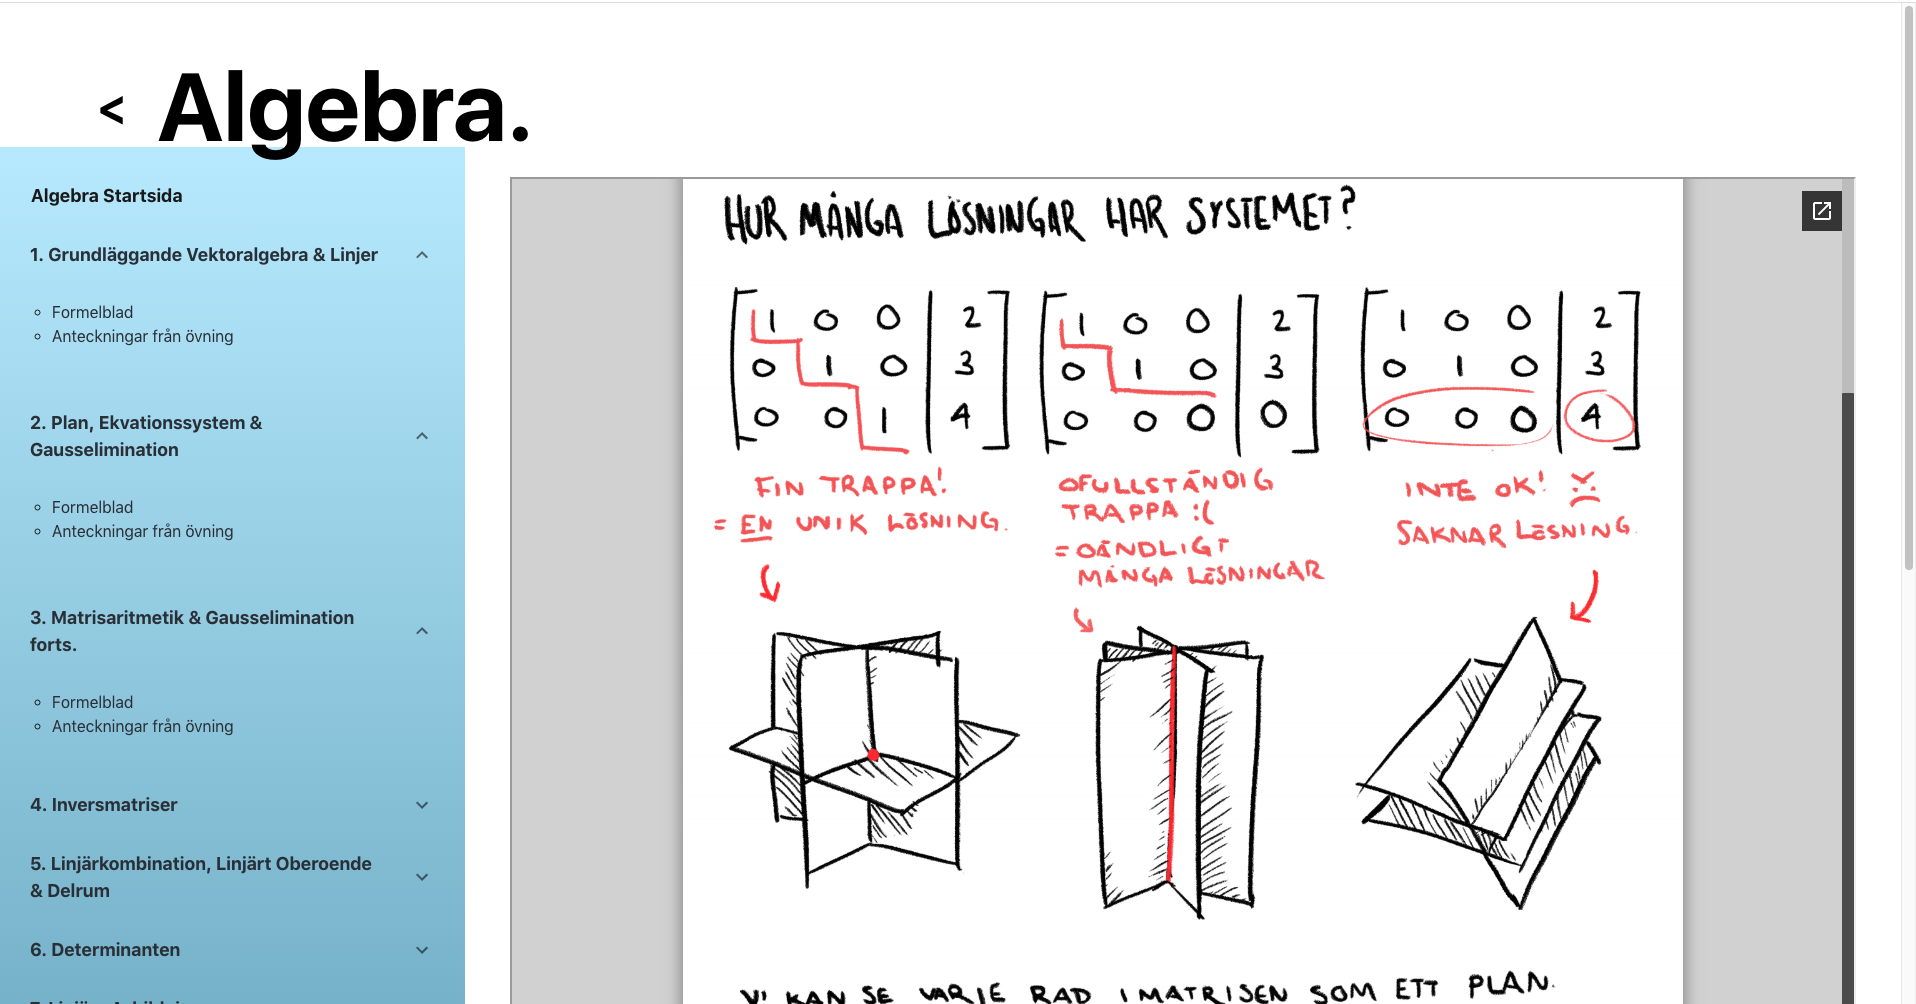 < Algebra.
Algebra Startsida
1. Grundläggande Vektoralgebra & Linjer
Formelblad
Anteckningar från övning
2. Plan, Ekvationssystem &
Gausselimination
Formelblad
Anteckningar från övning
3. Matrisaritmetik & Gausselimination
forts.
Formelblad
Anteckningar från övning
4. Inversmatriser
5. Linjärkombination, Linjärt Oberoende
& Delrum
6. Determinanten
HUR MÅNGA LÖSNINGAR HAR SYSTEMET?
1 0 0 2
0 1 0 3
0 0 1 4
FIN TRAPPA!
= EN UNIK LÖSNING.
1 0 0 2
0 1 0 3
0 0 0 0
OFULLSTÄNDIG
TRAPPA :(
= OÄNDLIGT
MÅNGA LÖSNINGAR
1 0 0 2
0 1 0 3
0 0 0 4
INTE OK!
SAKNAR LÖSNING.
VI KAN SE VARJE RAD I MATRISEN SOM ETT PLAN.